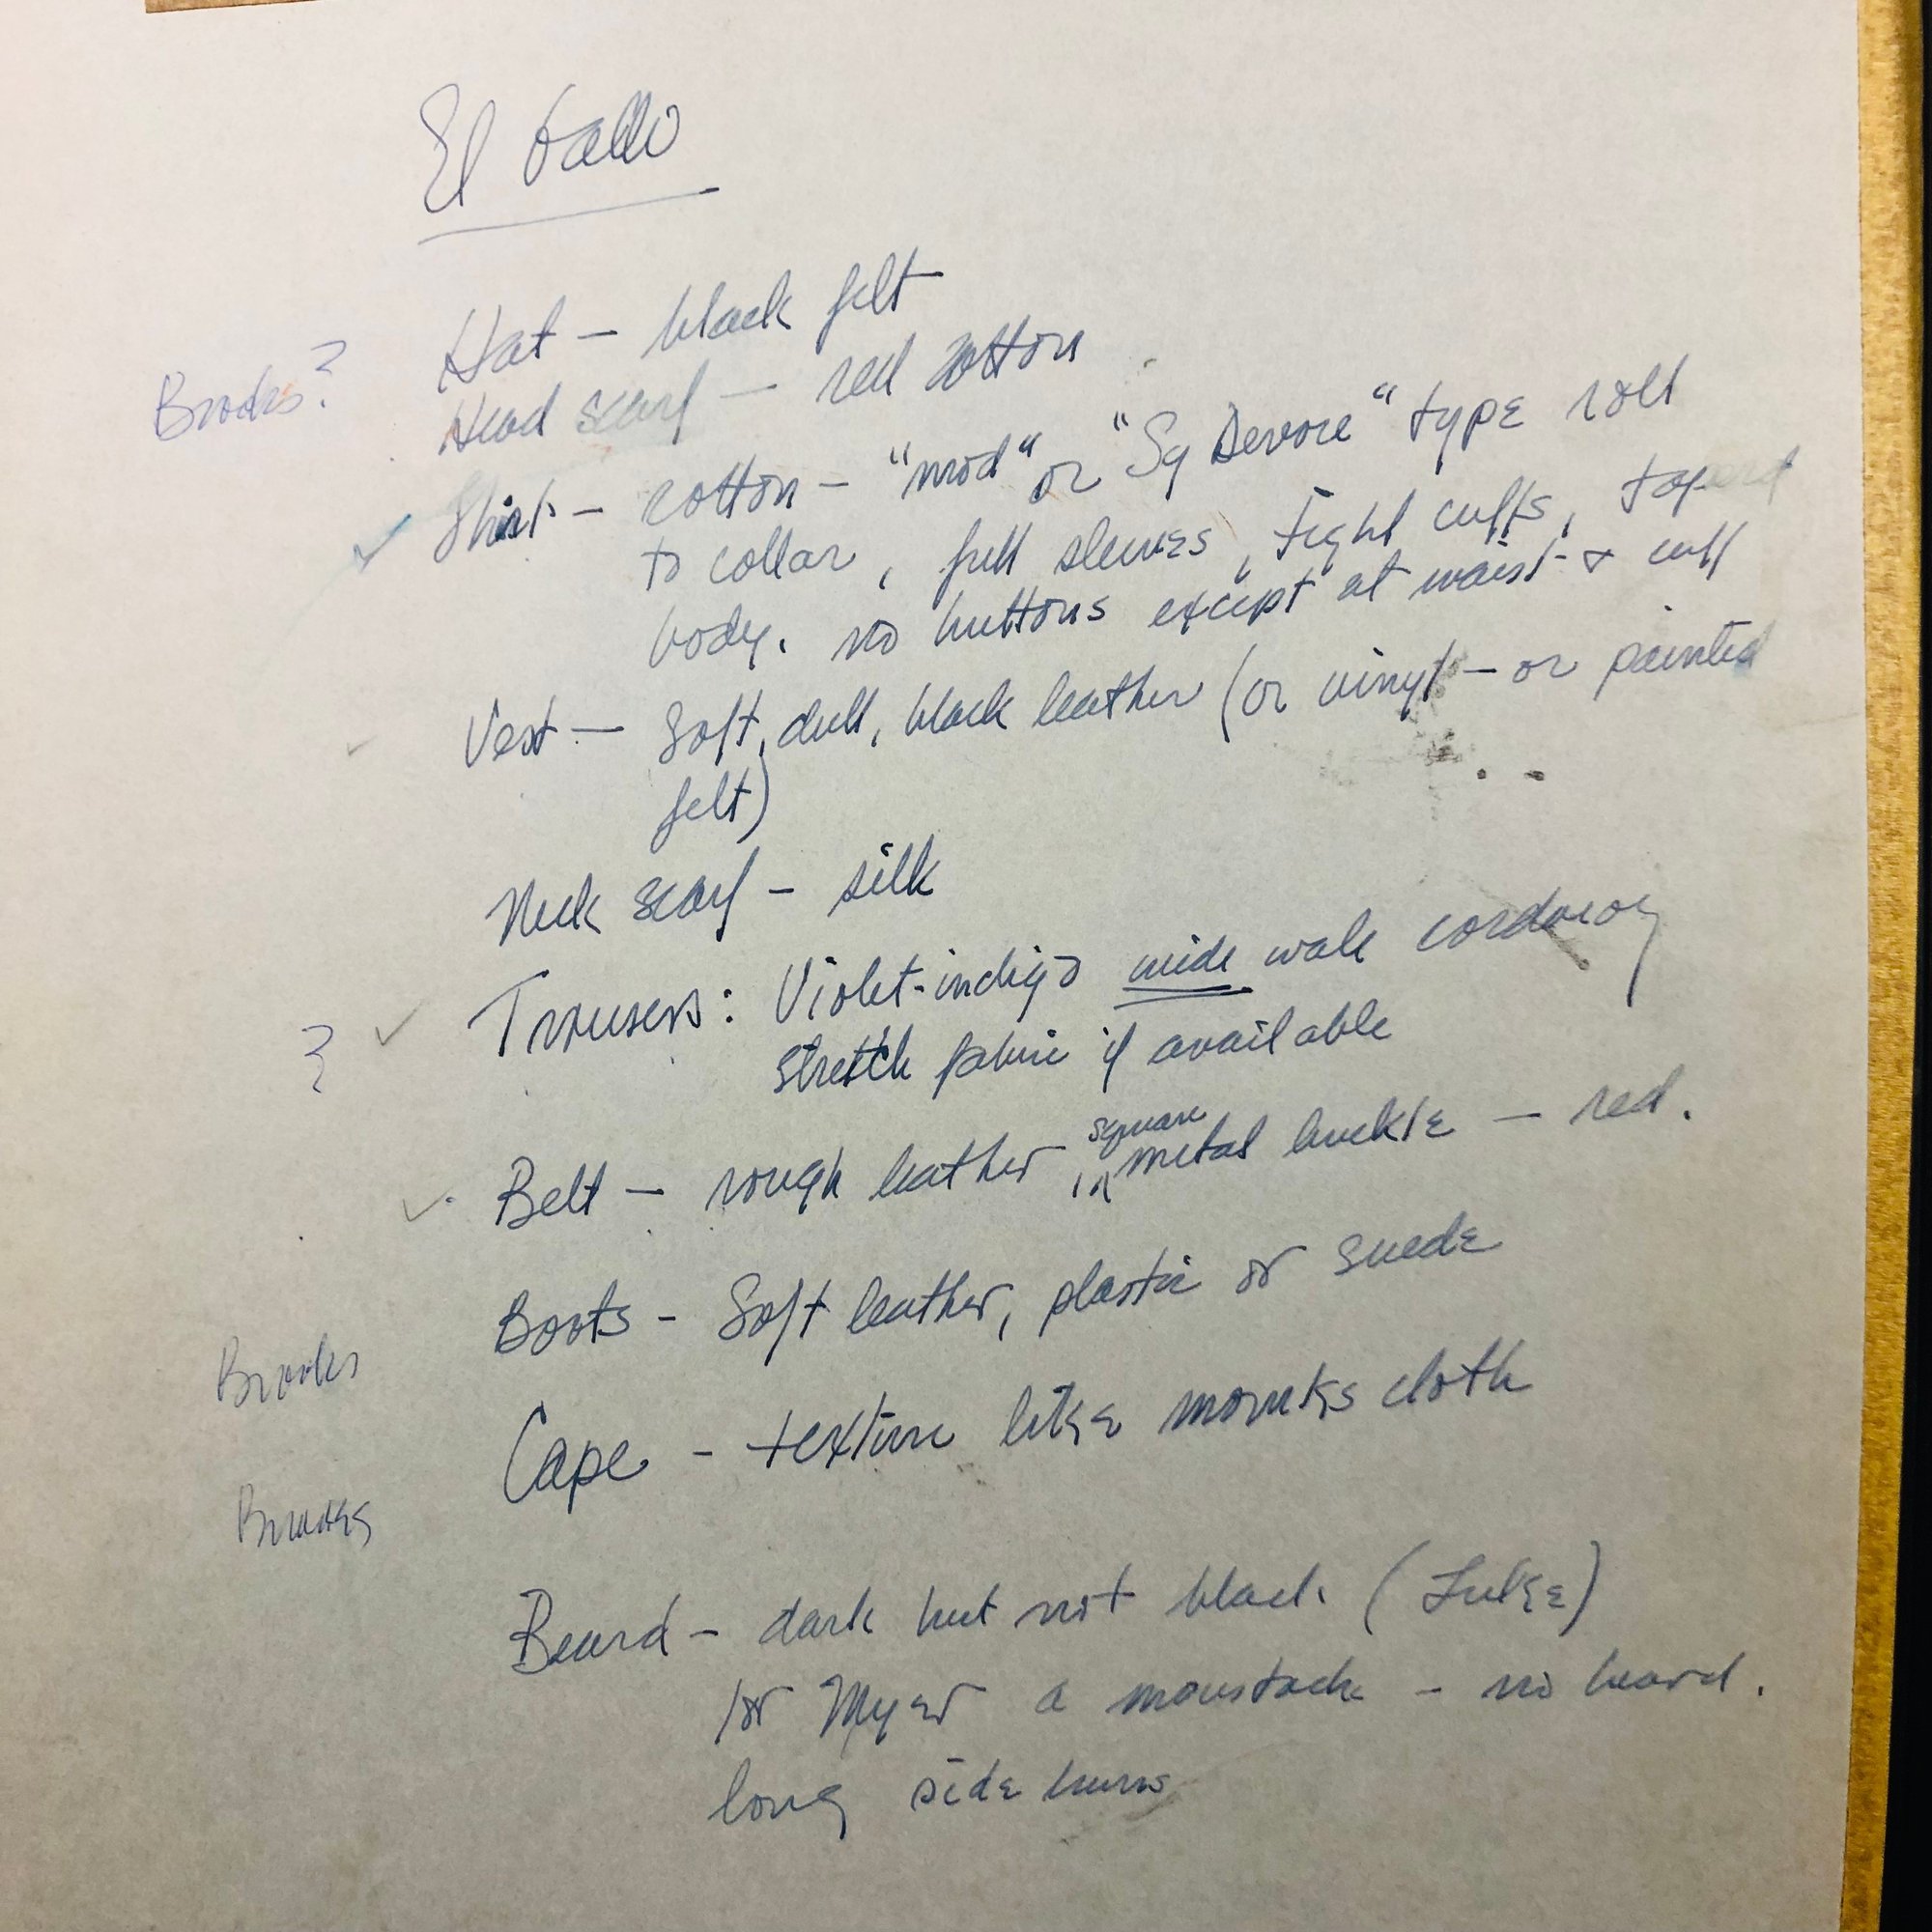 El Gallo
Hat — black felt
Brooks?
Head scarf — red cotton
✓ Shirt — cotton — "mod" or "Sy Devore" type roll
to collar, full sleeves, tight cuffs, taperd
body. no buttons except at waist & cuff
✓ Vest — Soft, dull, black leather (or vinyl — or painted
felt)
Neck scarf — silk
? ✓ Trousers: Violet-indigo wide wale corduroy
stretch fabric if available
✓ Belt — rough leather, square metal buckle — red.
Boots - Soft leather, plastic or suede
Brooks
Cape - texture like monks cloth
Brooks
Beard - dark but not black (Luke)
for Myer a moustache - no beard.
long side burns